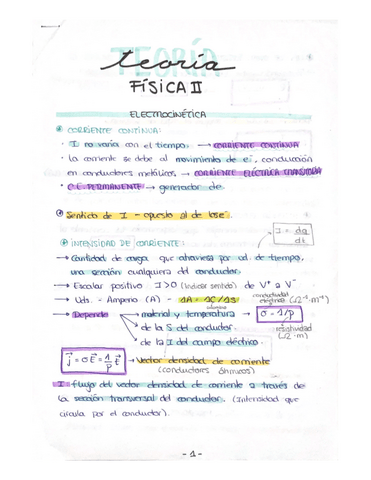 TEORÍA
teoría
FÍSICA II
ELECTROCINÉTICA
CORRIENTE CONTINUA:
· I no varía con el tiempo. → CORRIENTE CONTINUA
· La corriente se debe al movimiento de e⁻, conducción
en conductores metálicos, → CORRIENTE ELÉCTRICA TRANSITORIA
· C.E. PERMANENTE → generador de
Sentido de I - opuesto al de los e⁻.
I = dq/dt
INTENSIDAD DE CORRIENTE:
→ Cantidad de carga que atraviesa por ud. de tiempo,
una sección cualquiera del conductor.
→ Escalar positivo I>0 (Indicar sentido) de V⁺ a V⁻
→ Uds. - Amperio (A) - 1A = 1C/1s conductividad eléctrica (Ω⁻¹·m⁻¹)
→ Depende → material y temperatura → σ = 1/ρ
→ de la S del conductor. resistividad (Ω·m)
→ de la I del campo eléctrico.
j = σE = 1/ρ E → Vector densidad de corriente
(conductores óhmicos)
I = flujo del vector densidad de corriente a través de
la sección transversal del conductor. (Intensidad que
circula por el conductor).
- 1 -